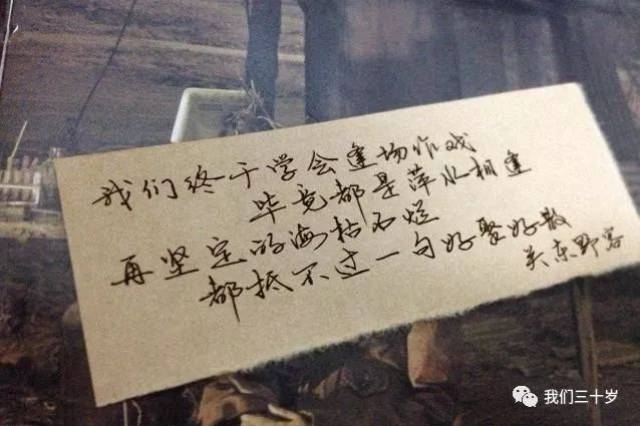 我们终于学会逢场作戏
毕竟都是萍水相逢
再坚定的海枯石烂
都抵不过一句好聚好散
关东野客
我们三十岁